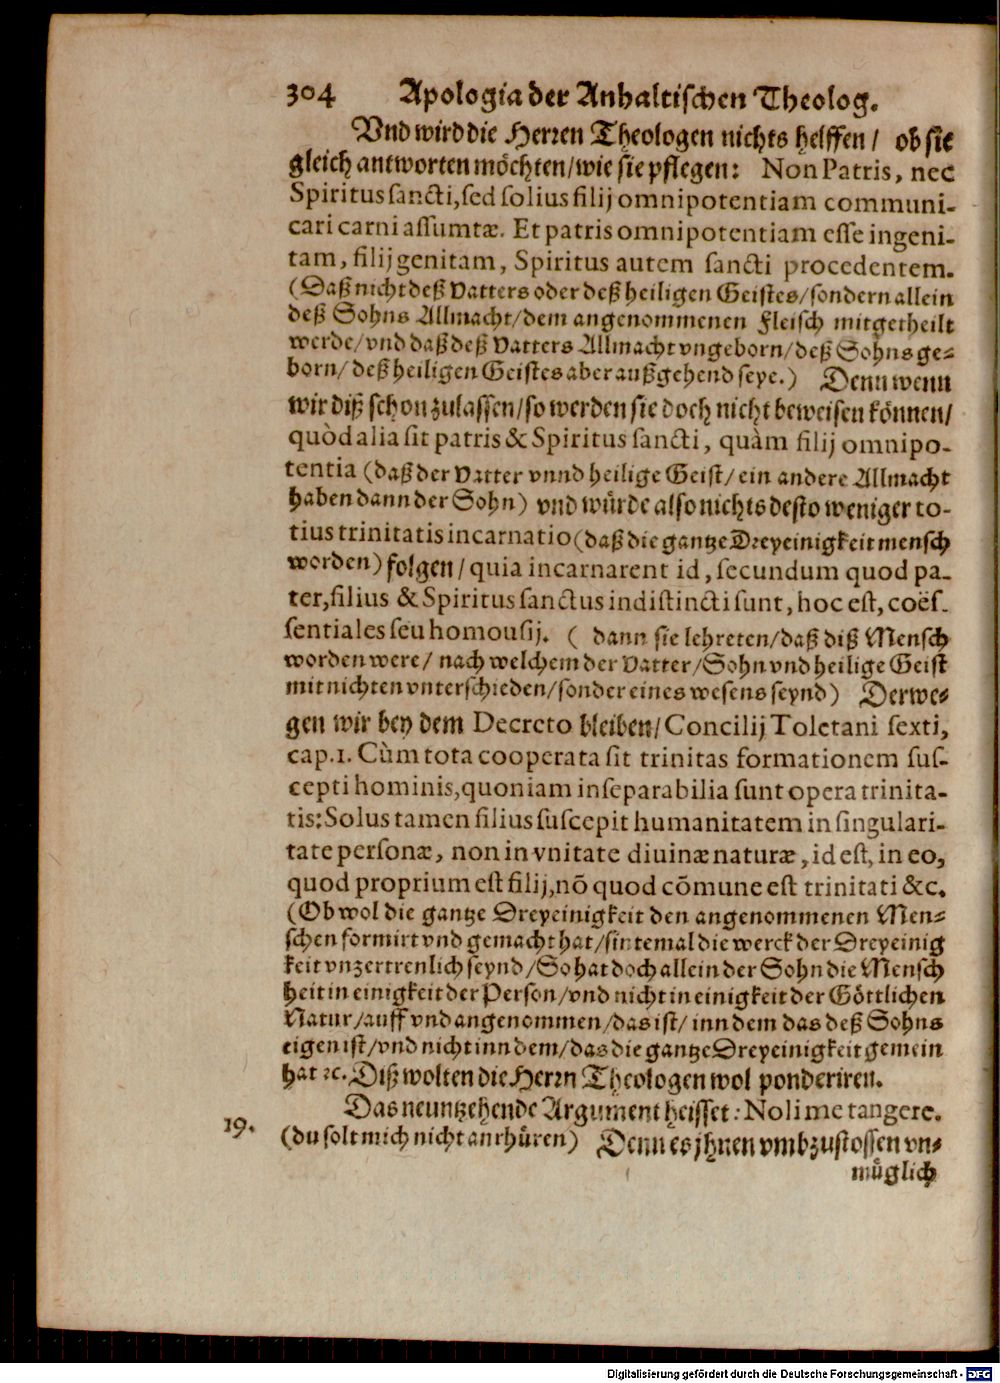 304 Apologia der Anhaltischen Theolog.
Vnd wird die Herren Theologen nichts helffen / ob sie
gleich antworten möchten/wie sie pflegen: Non Patris, nec
Spiritus sancti, sed solius filij omnipotentiam communi-
cari carni assumtæ. Et patris omnipotentiam esse ingeni-
tam, filij genitam, Spiritus autem sancti procedentem.
(Daß nicht deß Vatters oder deß heiligen Geistes/sondern allein
deß Sohns Allmacht/dem angenommenen Fleisch mitgetheilt
werde/vnd daß deß Vatters Allmacht vngeborn/deß Sohns ge-
born/deß heiligen Geistes aber außgehend seye.) Denn wenn
wir diß schon zulassen/so werden sie doch nicht beweisen können/
quòd alia sit patris & Spiritus sancti, quàm filij omnipo-
tentia (daß der Vatter vnnd heilige Geist/ein andere Allmacht
haben dann der Sohn) vnd würde also nichts desto weniger to-
tius trinitatis incarnatio (daß die gantze Dreyeinigkeit mensch
worden) folgen/ quia incarnarent id, secundum quod pa-
ter, filius & Spiritus sanctus indistincti sunt, hoc est, coës-
sentiales seu homousij. ( dann sie lehreten/daß diß Mensch
worden were/ nach welchem der Vatter/Sohn vnd heilige Geist
mit nichten vnterschieden/sonder eines wesens seynd) Derwe-
gen wir bey dem Decreto bleiben/Concilij Toletani sexti,
cap.1. Cùm tota cooperata sit trinitas formationem sus-
cepti hominis, quoniam inseparabilia sunt opera trinita-
tis: Solus tamen filius suscepit humanitatem in singulari-
tate personæ, non in vnitate diuinæ naturæ, id est, in eo,
quod proprium est filij, nõ quod cõmune est trinitati &c.
(Ob wol die gantze Dreyeinigkeit den angenommenen Men-
schen formirt vnd gemacht hat/sintemal die werck der Dreyeinig
keit vnzertrenlich seynd/So hat doch allein der Sohn die Mensch
heit in einigkeit der Person/vnd nicht in einigkeit der Göttlichen
Natur/auff vnd angenommen/das ist/ inn dem das deß Sohns
eigen ist/vnd nicht inn dem/das die gantze Dreyeinigkeit gemein
hat ꝛc. Diß wolten die Herrn Theologen wol ponderiren.
Das neuntzehende Argument heisset: Noli me tangere.
19. (du solt mich nicht anrhüren) Denn es jhnen vmbzustossen vn-
müglich
Digitalisierung gefördert durch die Deutsche Forschungsgemeinschaft - DFG